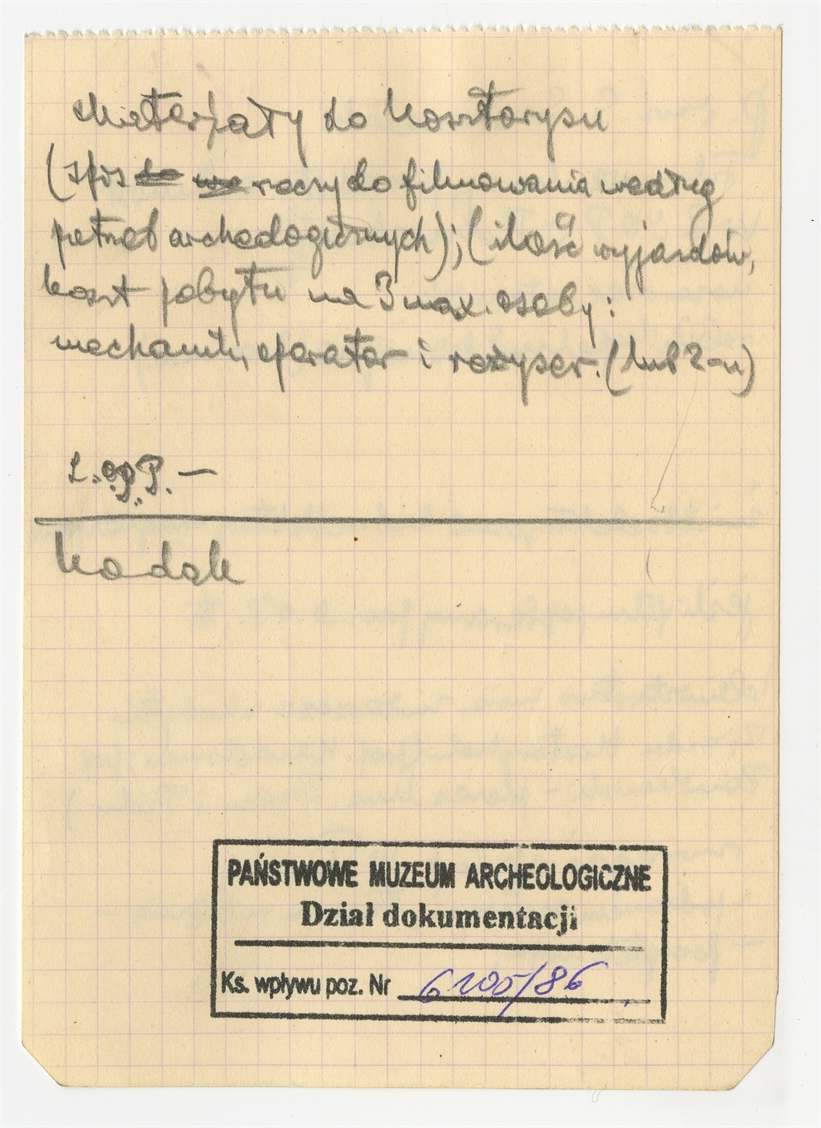 Materjały do kosztorysu
(spis do we rzeczy do filmowania według
potrzeb archeologicznych); (ilość wyjazdów,
koszt pobytu na 3 max. osoby:
mechanik, operator i reżyser. (lub 2-u)
L.O.P.P. —
Kodak
PAŃSTWOWE MUZEUM ARCHEOLOGICZNE
Dział dokumentacji
Ks. wpływu poz. Nr 6205/86